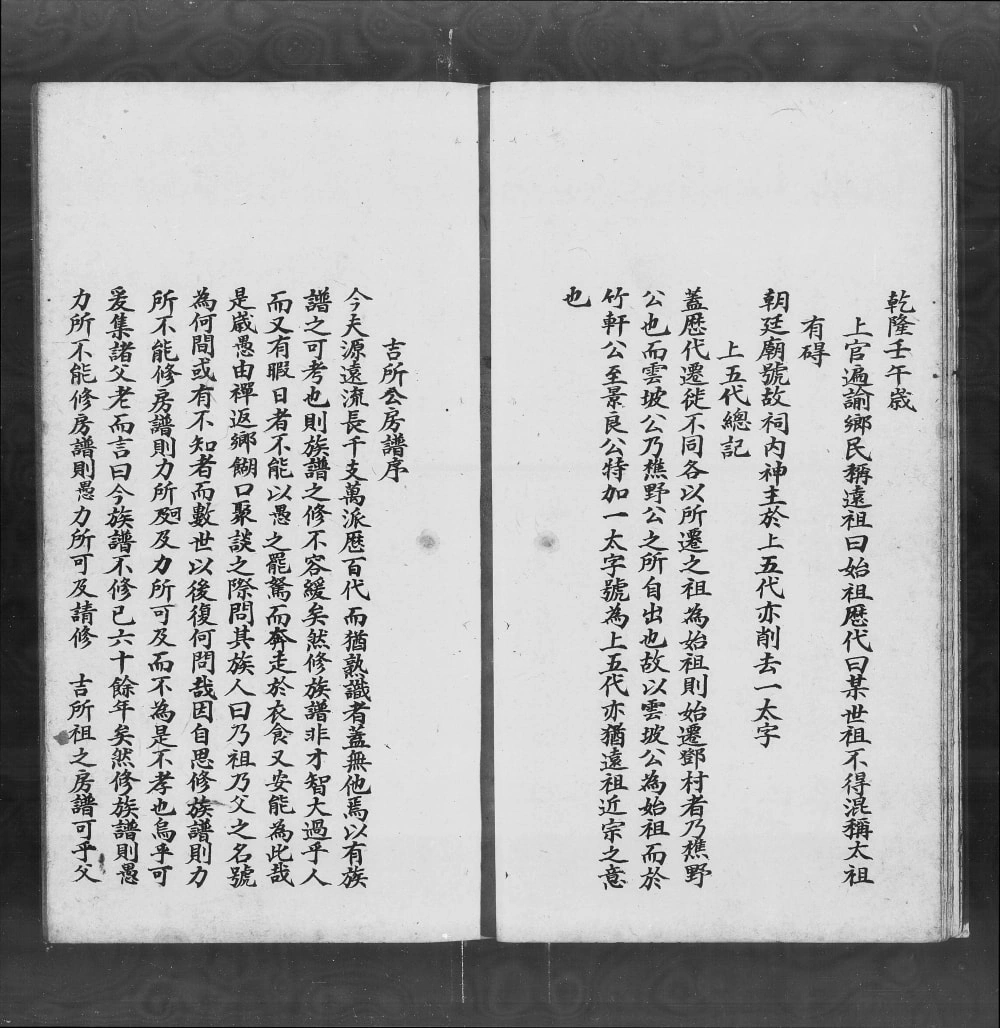 乾隆壬午歲
上官遍諭鄉民稱遠祖曰始祖歷代曰某世祖不得混稱太祖
有碍
朝廷廟號故祠內神主於上五代亦削去一太字
上五代總記
蓋歷代遷徙不同各以所遷之祖為始祖則始遷鄧村者乃樵野
公也而雲坡公乃樵野公之所自出也故以雲坡公為始祖而於
竹軒公至景良公特加一太字號為上五代亦猶遠祖近宗之意
也
吉所公房譜序
今夫源遠流長千支萬派歷百代而猶熟識者蓋無他焉以有族
譜之可考也則族譜之修不容緩矣然修族譜非才智大過乎人
而又有暇日者不能以愚之罷駑而奔走於衣食又安能為此哉
是歲愚由禪返鄉餬口聚談之際問其族人曰乃祖乃父之名號
為何間或有不知者而數世以後復何問哉因自思修族譜則力
所不能修房譜則力所可及力所可及而不為是不孝也烏乎可
爰集諸父老而言曰今族譜不修已六十餘年矣然修族譜則愚
力所不能修房譜則愚力所可及請修 吉所祖之房譜可乎父